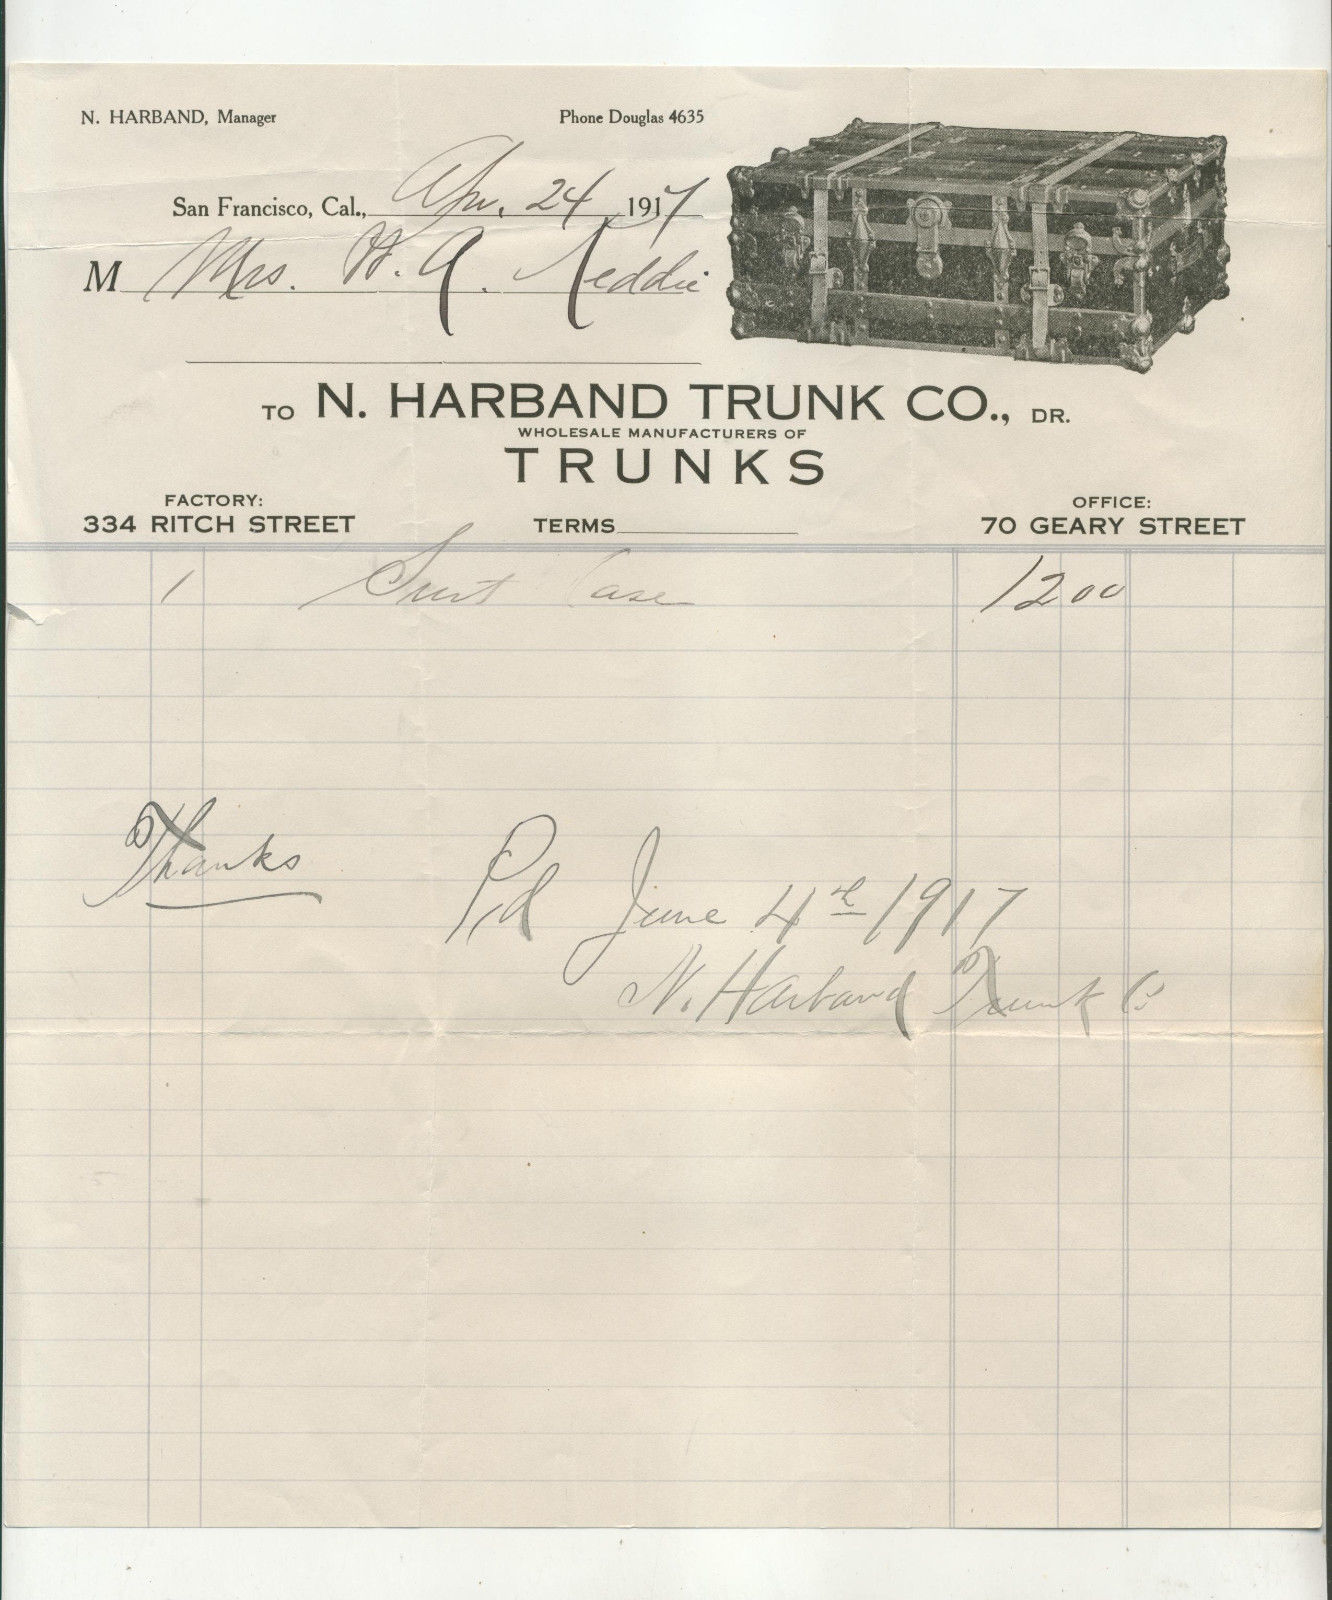 N. HARBAND, Manager
Phone Douglas 4635
San Francisco, Cal., Apr. 24 1917
M Mrs. H. A. Keddie
TO N. HARBAND TRUNK CO., DR.
WHOLESALE MANUFACTURERS OF
TRUNKS
FACTORY:
334 RITCH STREET
TERMS
OFFICE:
70 GEARY STREET
1 Suit Case 12 00
Thanks
Pd June 4th 1917
N. Harband Trunk Co